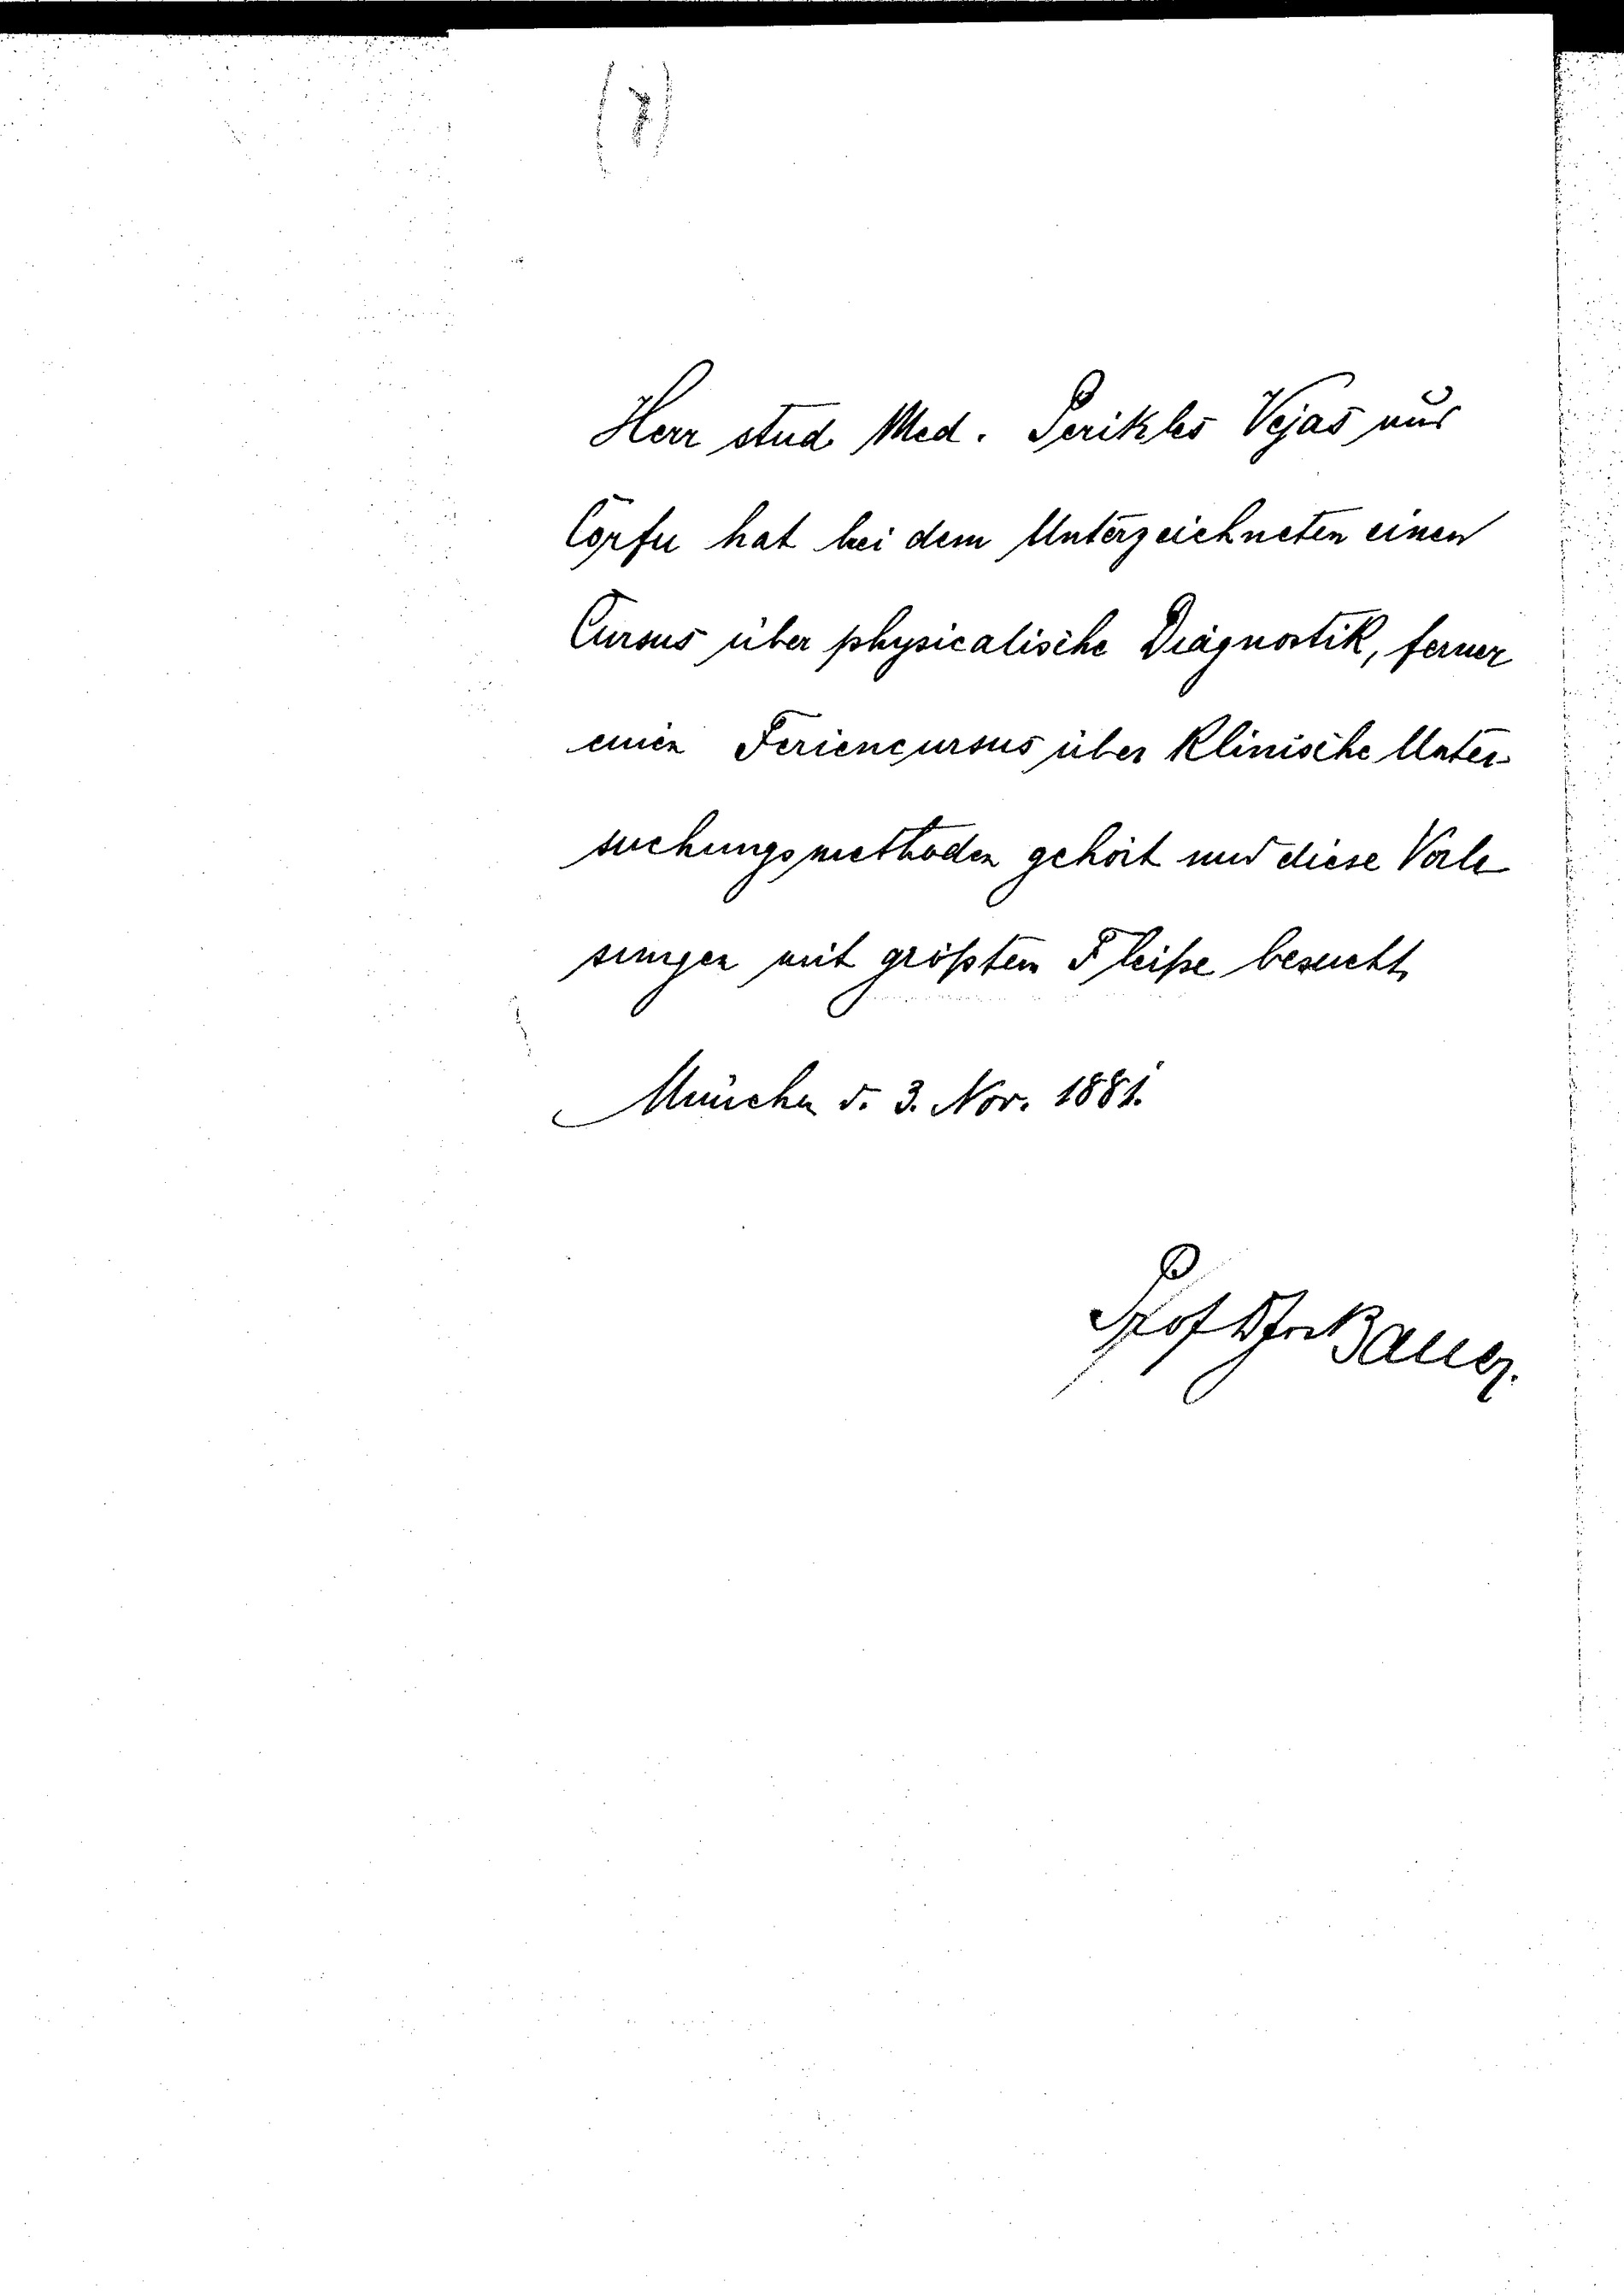 (7)
Herr stud Med. Perikles Vejas aus
Corfu hat bei dem Unterzeichneten einen
Cursus über physicalische Diagnostik, ferner
einen Feriencursus über klinische Unter-
suchungsmethoden gehört und diese Vorle
sungen mit größtem Fleiße besucht,
München d. 3. Nov. 1881.
Prof Bauer.